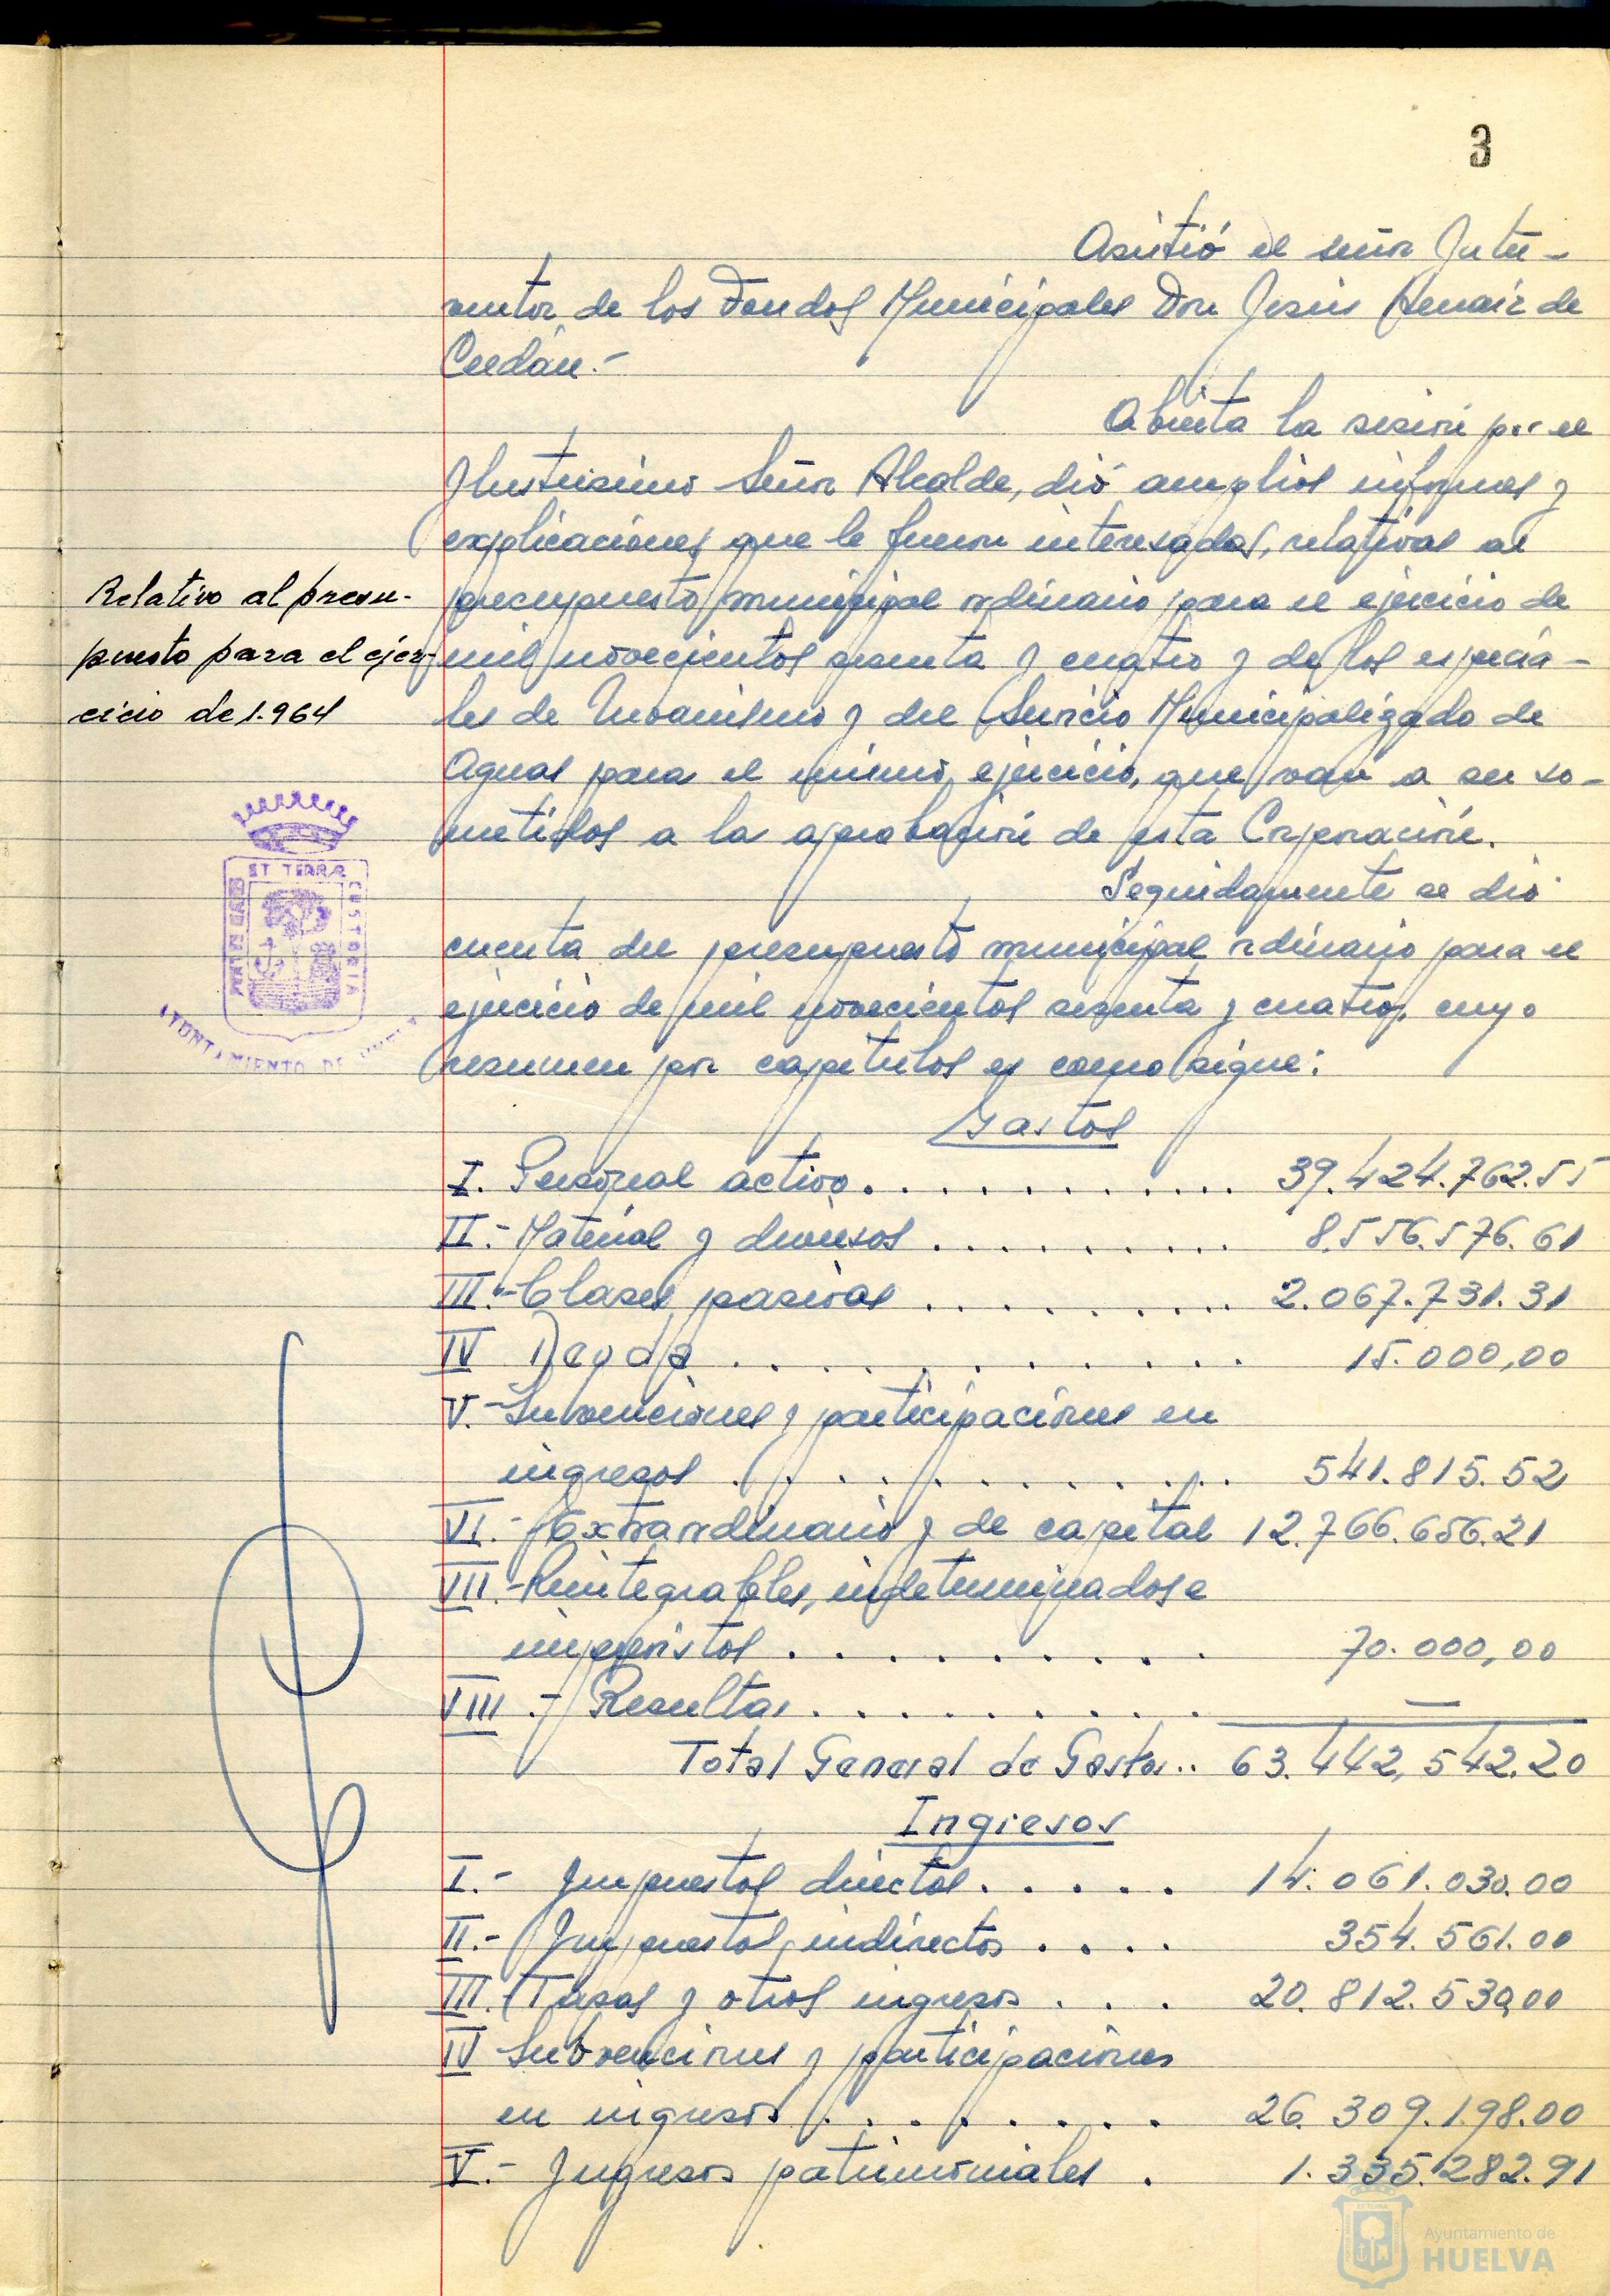 3
Asistió el señor Inter-
ventor de los Fondos Municipales Don Jesús Arnaiz de
Cerdán.-
Abierta la sesión por el
Ilustrísimo Señor Alcalde, dió amplios informes y
explicaciones que le fueron interesadas, relativas al
Relativo al presu-
puesto para el ejer-
cicio de 1.964
presupuesto municipal ordinario para el ejercicio de
mil novecientos sesenta y cuatro y de los especia-
les de Urbanismo y del Servicio Municipalizado de
Aguas para el mismo ejercicio, que van a ser so-
metidos a la aprobación de esta Corporación.
Seguidamente se dió
cuenta del presupuesto municipal ordinario para el
ejercicio de mil novecientos sesenta y cuatro, cuyo
resumen por capítulos es como sigue:
PORTUS MARIS ET TERRAE CUSTODIA
AYUNTAMIENTO DE HUELVA
Gastos
I. Personal activo. . . . . . . . . . . . 39.424.762.55
II.- Material y diversos . . . . . . . . . 8.556.576.61
III.- Clases pasivas . . . . . . . . . . 2.067.731.31
IV Deuda . . . . . . . . . . . . 15.000,00
V.- Subvenciones y participaciones en
ingresos . . . . . . . . . . . 541.815.52
VI.- Extraordinario y de capital 12.766.656.21
VII.- Reintegrables, indeterminados e
imprevistos . . . . . . . . . 70.000,00
VIII.- Resultas . . . . . . . . . —
Total General de Gastos.. 63.442,542.20
Ingresos
I.- Impuestos directos. . . . . 14.061.030.00
II.- Impuestos indirectos . . . . 354.561.00
III. Tasas y otros ingresos . . . 20.812.530,00
IV Subvenciones y participaciones
en ingresos . . . . . . . . 26.309.198.00
V.- Ingresos patrimoniales . 1.335.282.91
Ayuntamiento de
HUELVA